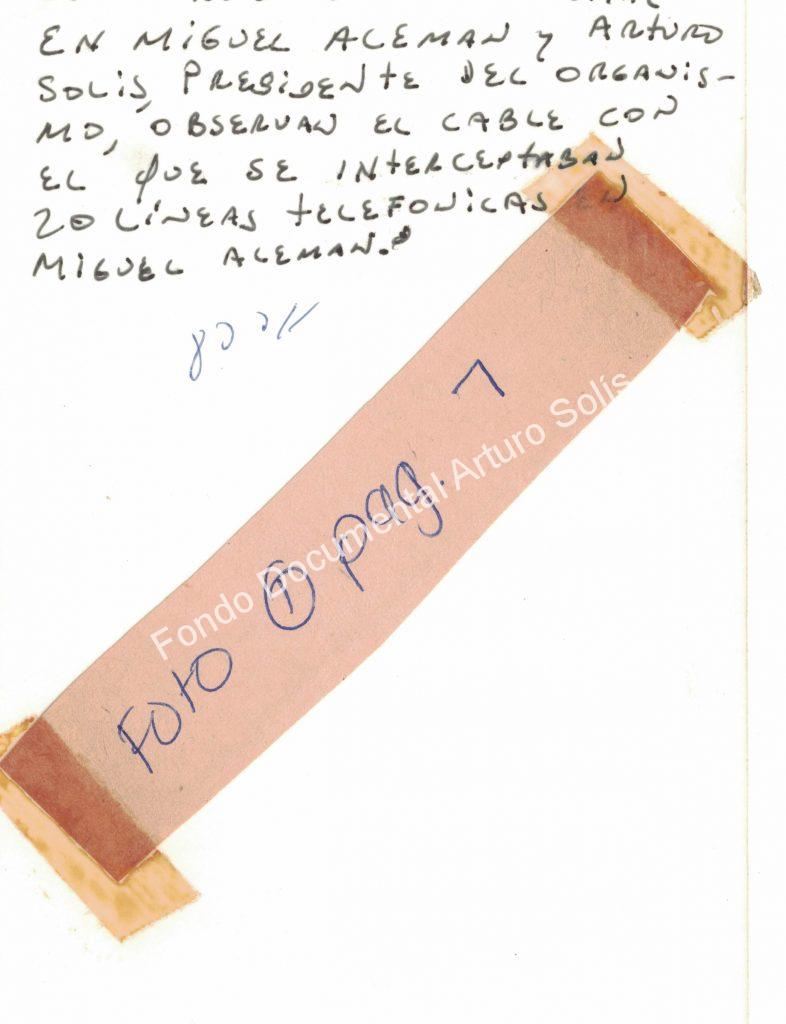 EN MIGUEL ALEMAN y ARTURO
SOLIS, PRESIDENTE DEL ORGANIS-
MO, OBSERVAN EL CABLE CON
EL QUE SE INTERCEPTABAN
20 LÍNEAS TELEFONICAS EN
MIGUEL ALEMAN.
Foto ① pag. 7
Fondo Documental Arturo Solís